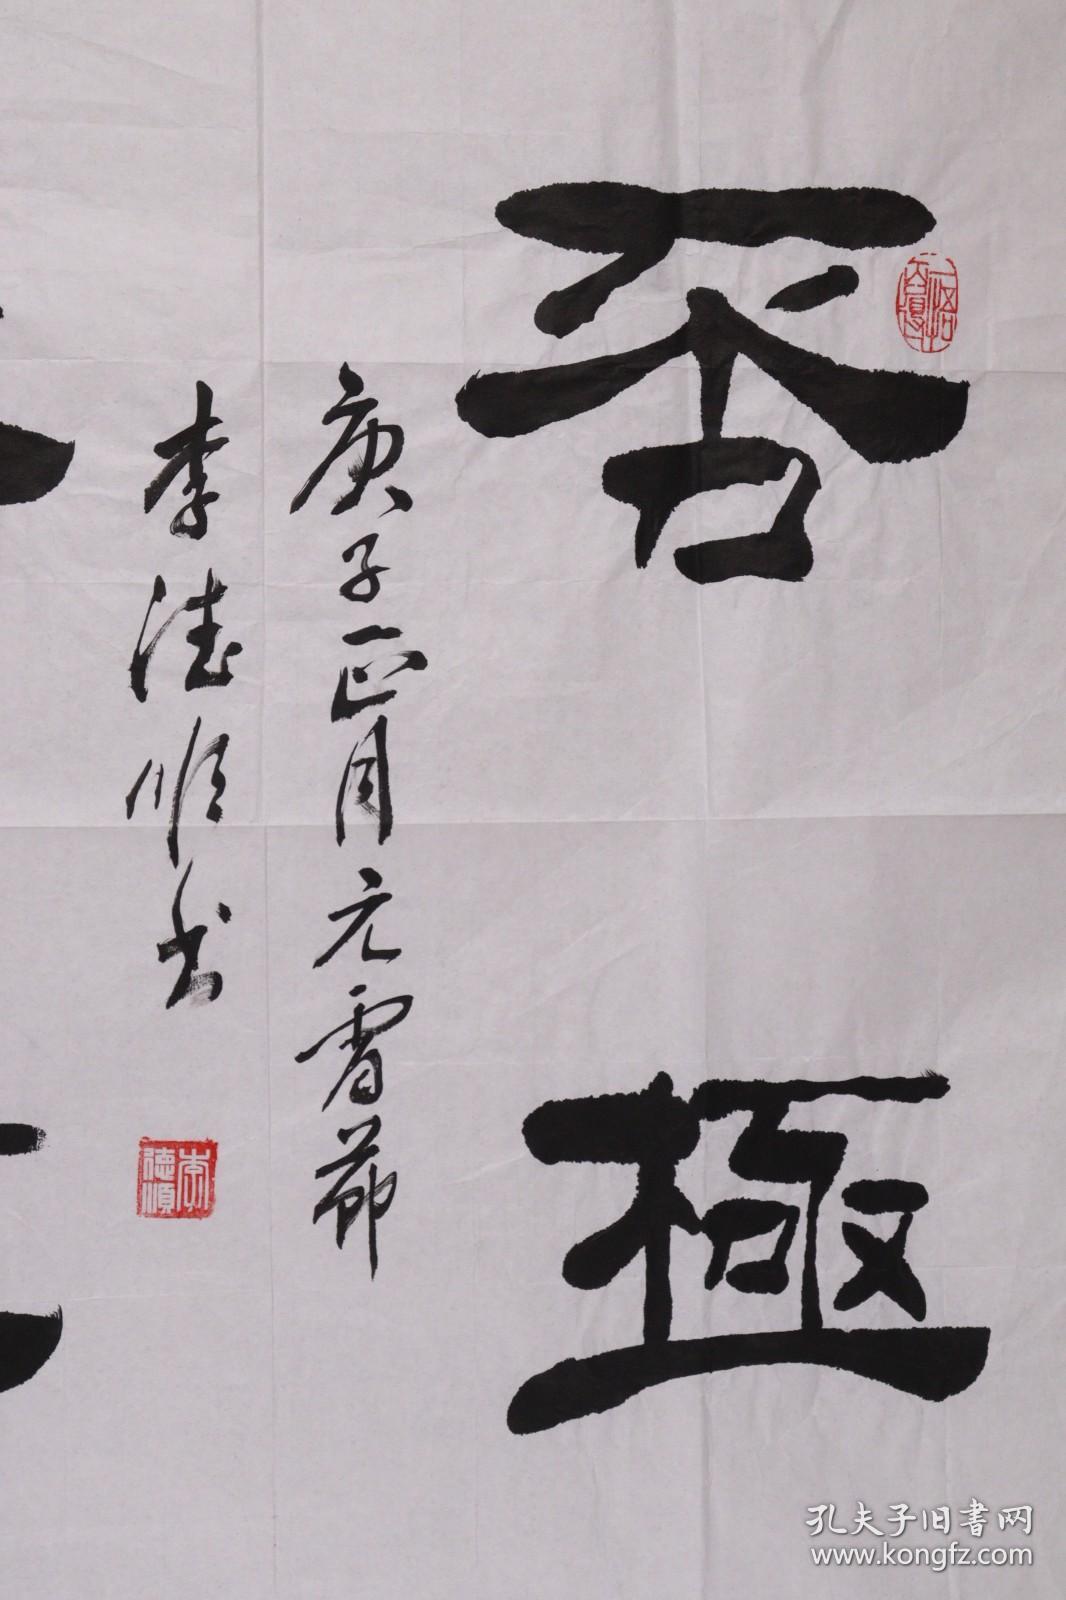 否極
庚子正月元宵節
李德順书
李德順
孔夫子旧書网
www.kongfz.com